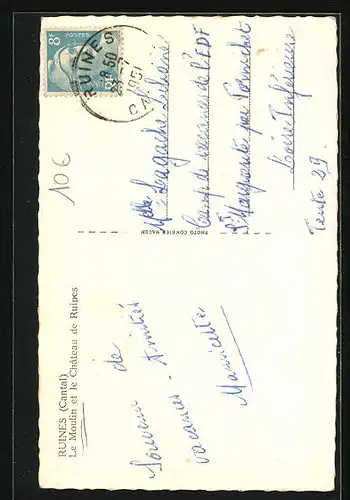 RUINES (Cantal)
Le Moulin et le Château de Ruines
Souvenir de
vacances - Amitiés
PHOTO COMBIER MACON
8F
POSTES
RUINES
CANTAL
Camp de vacances de l'EDF
Ste Marguerite par Pornichet
Loire Inférieure
Tente 29.
10 €